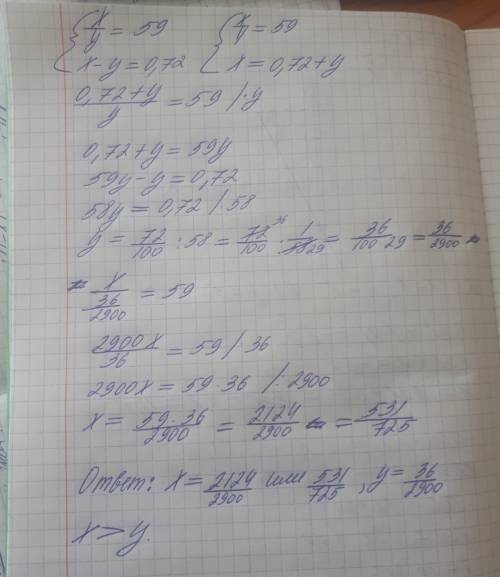 { x/y = 59 { x/y = 59
x-y = 0,72 x = 0,72+y
0,72+y/y = 59 /·y
0,72+y = 59y
59y-y = 0,72
58y = 0,72 / 58
y = 72/100 : 58 = 72/100 36 · 1/58 29 = 36/100·29 = 36/2900
x/36/2900 = 59
2900x/36 = 59 /·36
2900x = 59·36 /:2900
x = 59·36/2900 = 2124/2900 = 531/725
Ответ: x = 2124/2900 или 531/725, y = 36/2900
x > y.